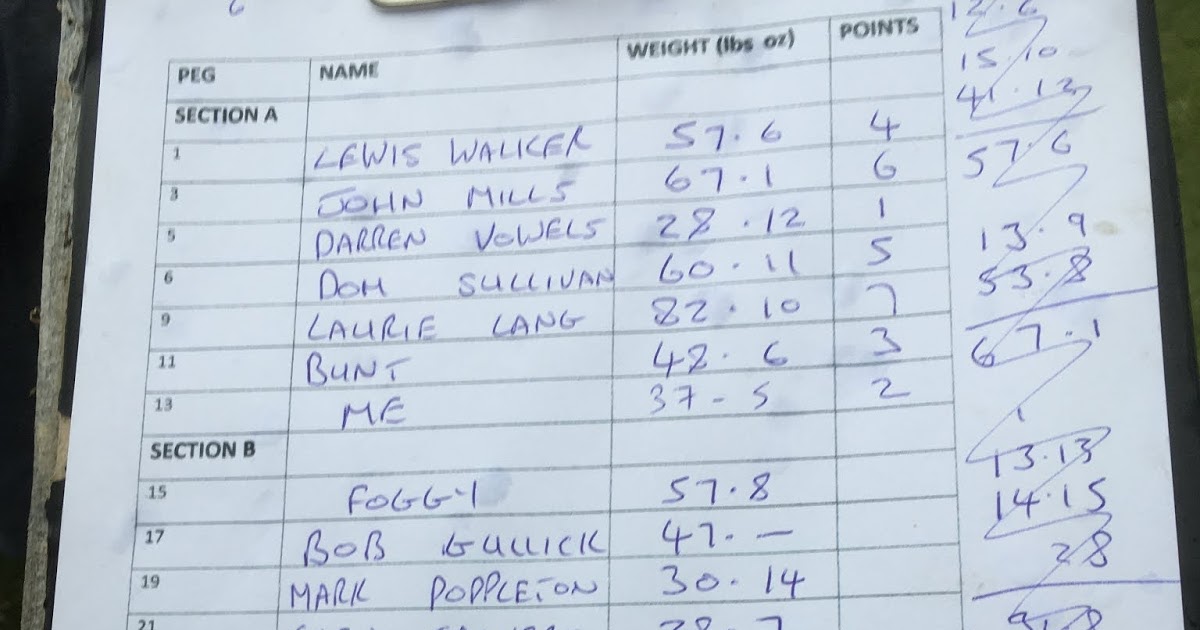 6
PEG NAME WEIGHT (lbs oz) POINTS
SECTION A
1 LEWIS WALKER 57.6 4
3 JOHN MILLS 67.1 6
5 DARREN VOWELS 28.12 1
6 DOM SULLIVAN 60.11 5
9 LAURIE LANG 82.10 7
11 BUNT 42.6 3
13 ME 37-5 2
SECTION B
15 FOGGY 57.8
17 BOB GULLICK 47.—
19 MARK POPPLETON 30.14
21
12.6
15.10
41.12
57.6
13.9
53.8
67.1
13.13
14.15
28